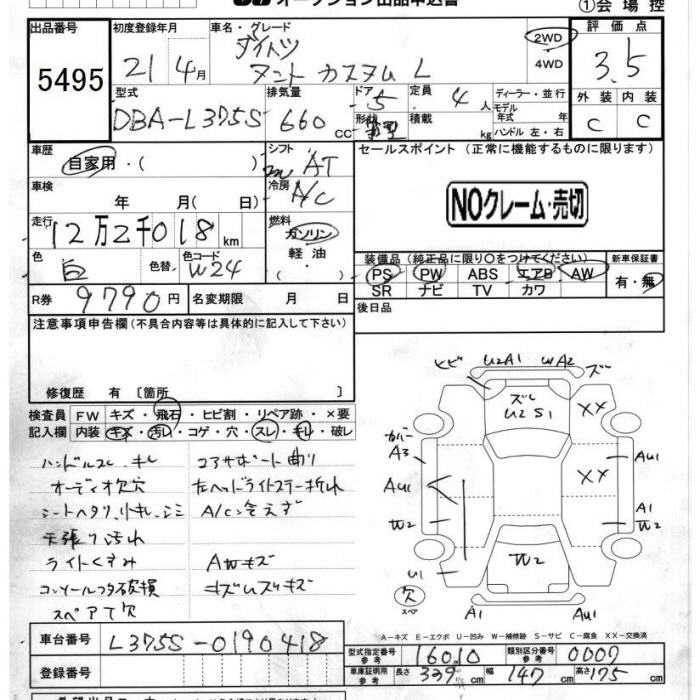 オークション出品申込書
①会場控
出品番号 5495
初度登録年月 21年4月
車名・グレード ダイハツ タント カスタム L
2WD 4WD
評価点 3.5
外装 C 内装 C
型式 DBA-L375S
排気量 660cc
ドア 5
形状
定員 4人
積載 kg
ディーラー・並行
モデル年式 年
ハンドル 左・右
車歴 自家用・( )
シフト AT
冷房 A/C
セールスポイント (正常に機能するものに限ります)
NOクレーム・売切
車検 年 月( 日)
走行 12万2千018km
燃料 ガソリン・軽油
色 白 色替 色コード W24
装備品(純正品に限り○をつけてください)
PS PW ABS エアB AW
SR ナビ TV カワ
新車保証書 有・無
R券 9790円 名変期限 月 日
後日品
注意事項申告欄(不具合内容等は具体的に記入して下さい)
修復歴 有 [箇所 ]
検査員記入欄
FW キズ・飛石・ヒビ割・リペア跡・×要
内装 キズ・汚レ・コゲ・穴・スレ・キレ・破レ
ハンドルスレ、キレ
オーディオ欠穴
シートヘタリ、小キレ、シミ
天張り汚れ
ライトくすみ
コンソールフタ破損
スペアて欠
コアサポート曲り
左ヘッドライトステー折れ
A/C冷えず
AWキズ
キズムズキズ
ヒビ U2A1 WA2 ズレ
ズレ
U2S1
XX
カバー
A3
AU1
XX
AU1
W2
A1
W2
W2
U1
欠
スペア
A1
AU1
A-キズ E-エクボ U-凹み W-補修跡 S-サビ C-腐食 XX-交換済
車台番号 L375S-0190418
登録番号
型式指定番号 参考 16010
類別区分番号 参考 0007
車庫証明用 参考 長さ 339cm 幅 147cm 高さ 175cm